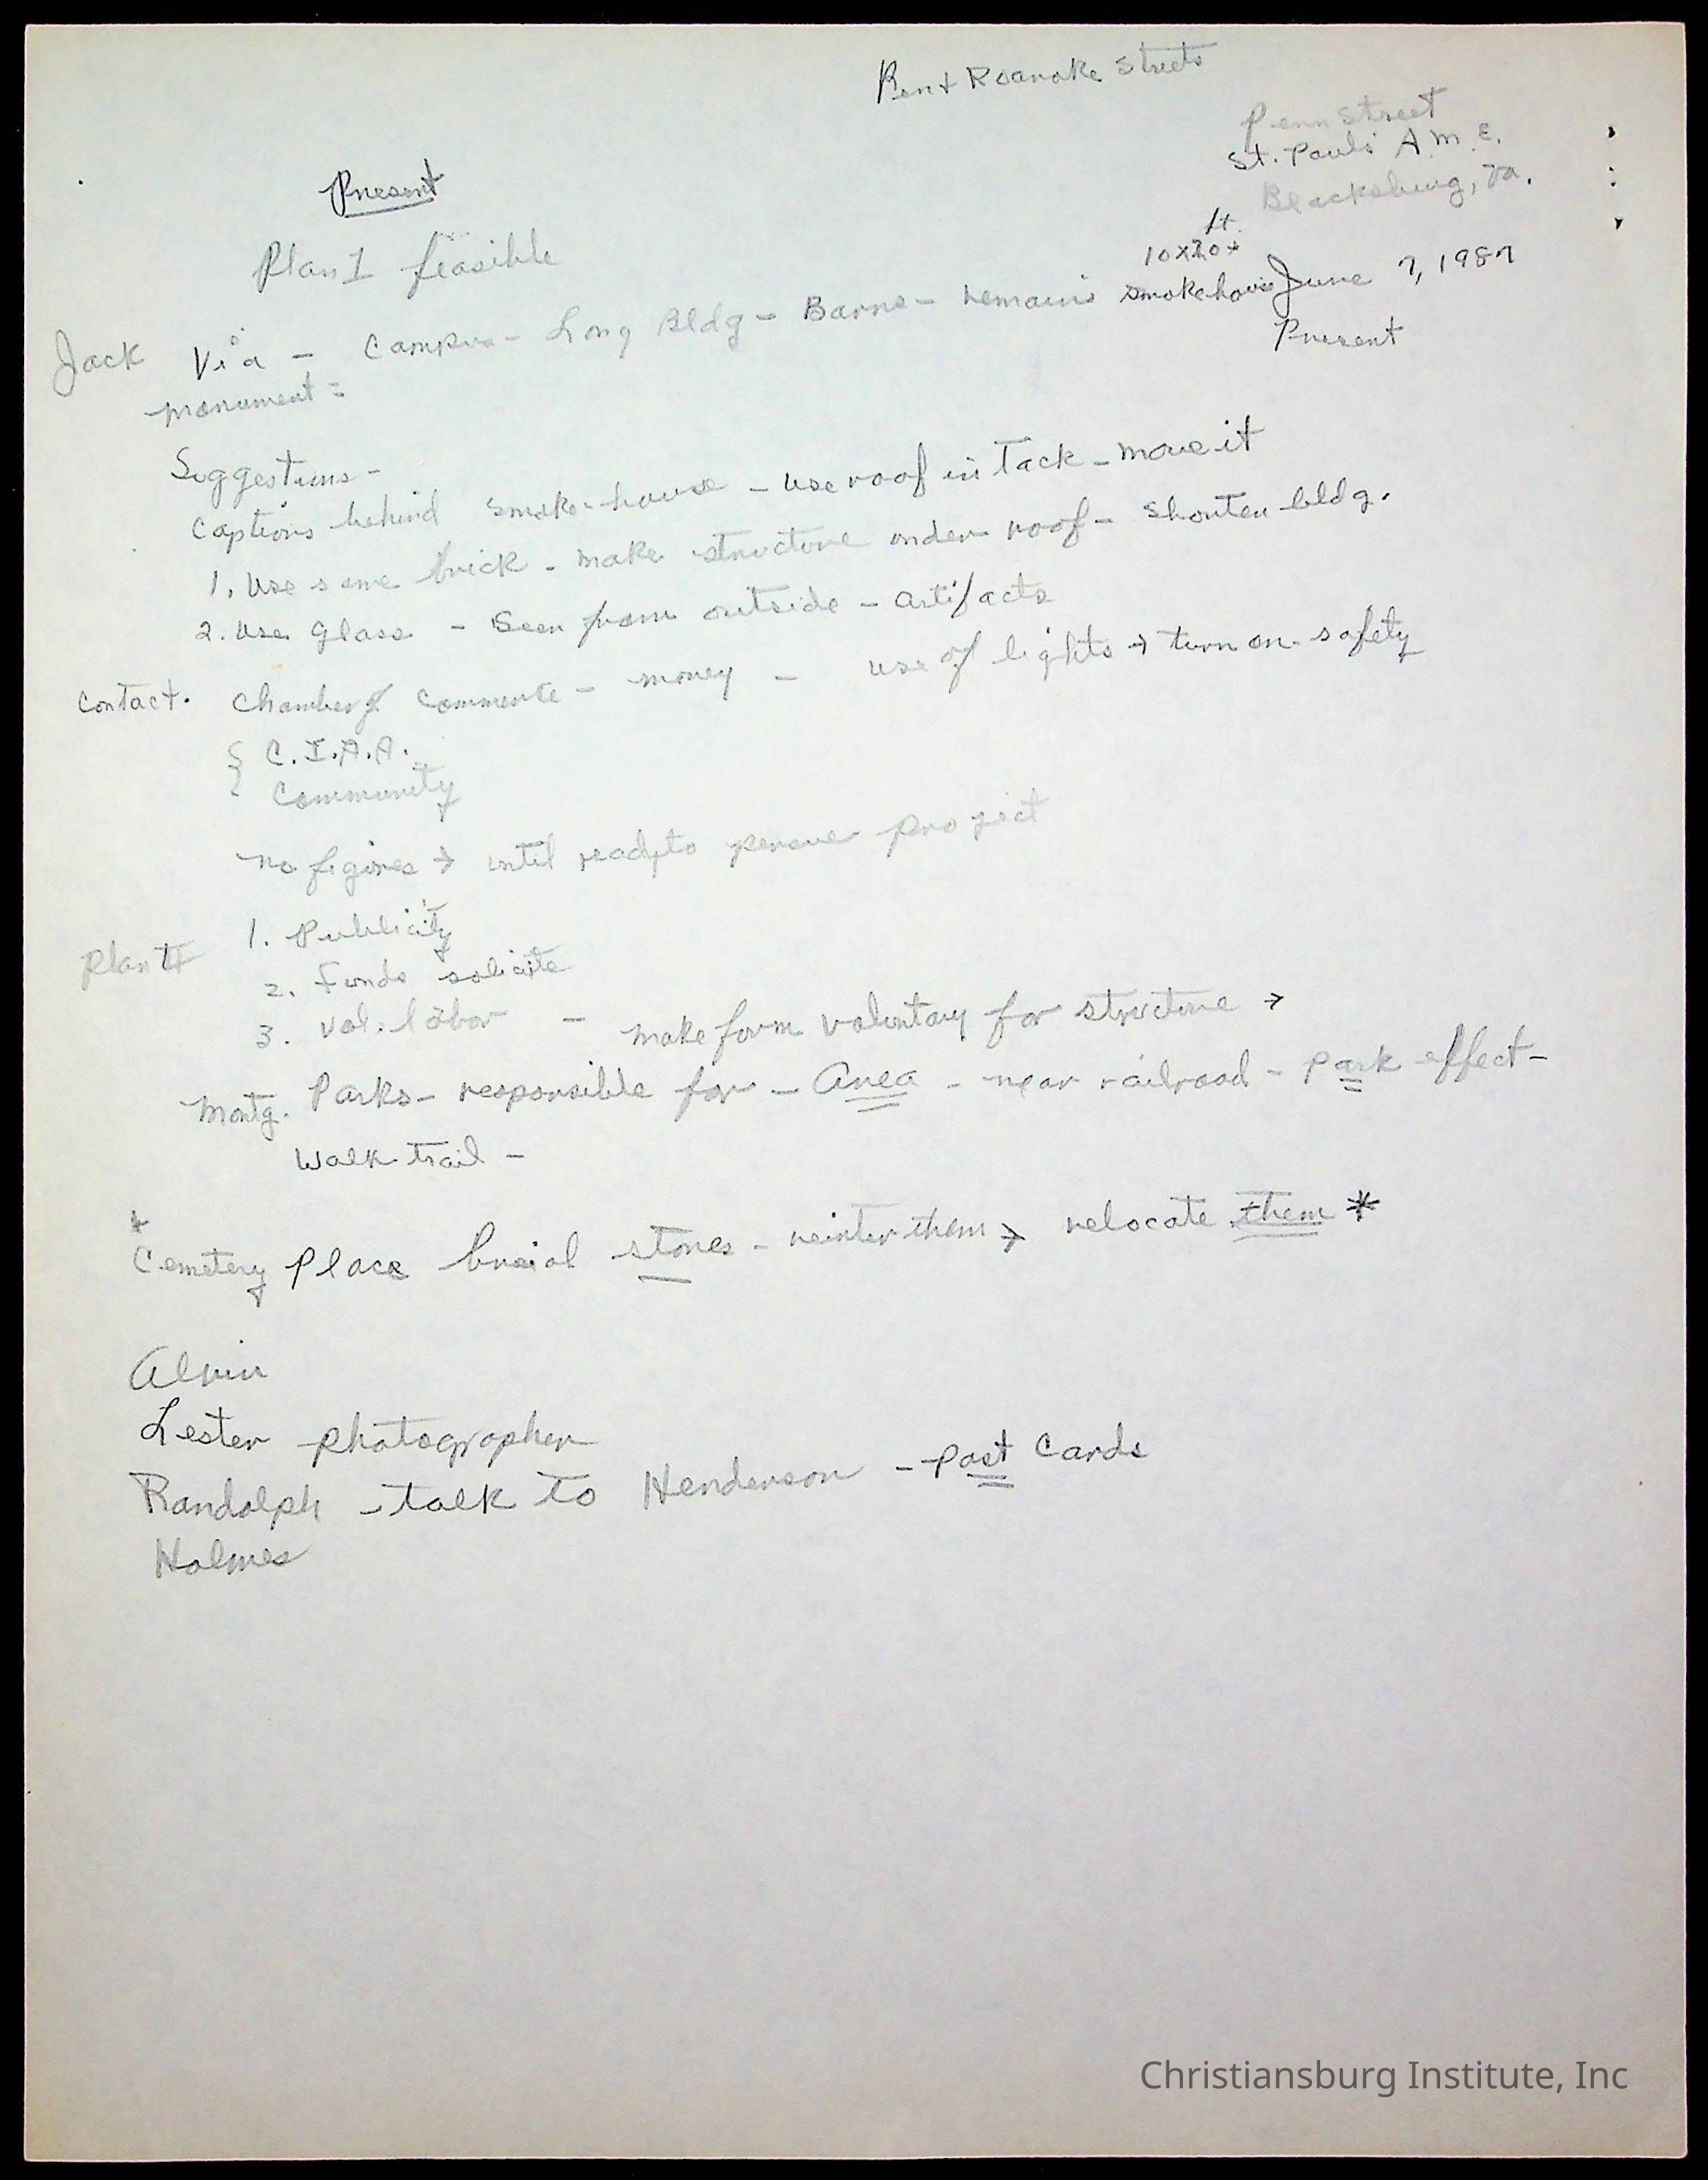 Roanoke Streets
Penn Street
St. Pauls A.M.E.
Blacksburg, Va.
Present
ft.
10x20+
Plan I feasible
June 7, 1987
Present
Jack Via - Campus - Long Bldg - Barns - remains smokehouse
monument =
Suggestions -
Captions behind smoke-house - use roof in tack - move it
1. Use same brick - make structure under roof - shorten bldg.
2. Use glass - seen from outside - artifacts
Contact. Chamber of Commerce - money - use of lights → turn on safety
C.I.A.A.
Community
no figures → until ready to persue project
1. Publicity
Plan II
2. Funds solicite
3. Vol. labor - make form voluntary for structure →
Montg. Parks - responsible for - Area - near railroad - Park effect -
Walk trail -
* Cemetery Place burial stones - reinter them → relocate them *
Alvin
Lester photographer
Randolph - talk to Henderson - Post Cards
Holmes
Christiansburg Institute, Inc